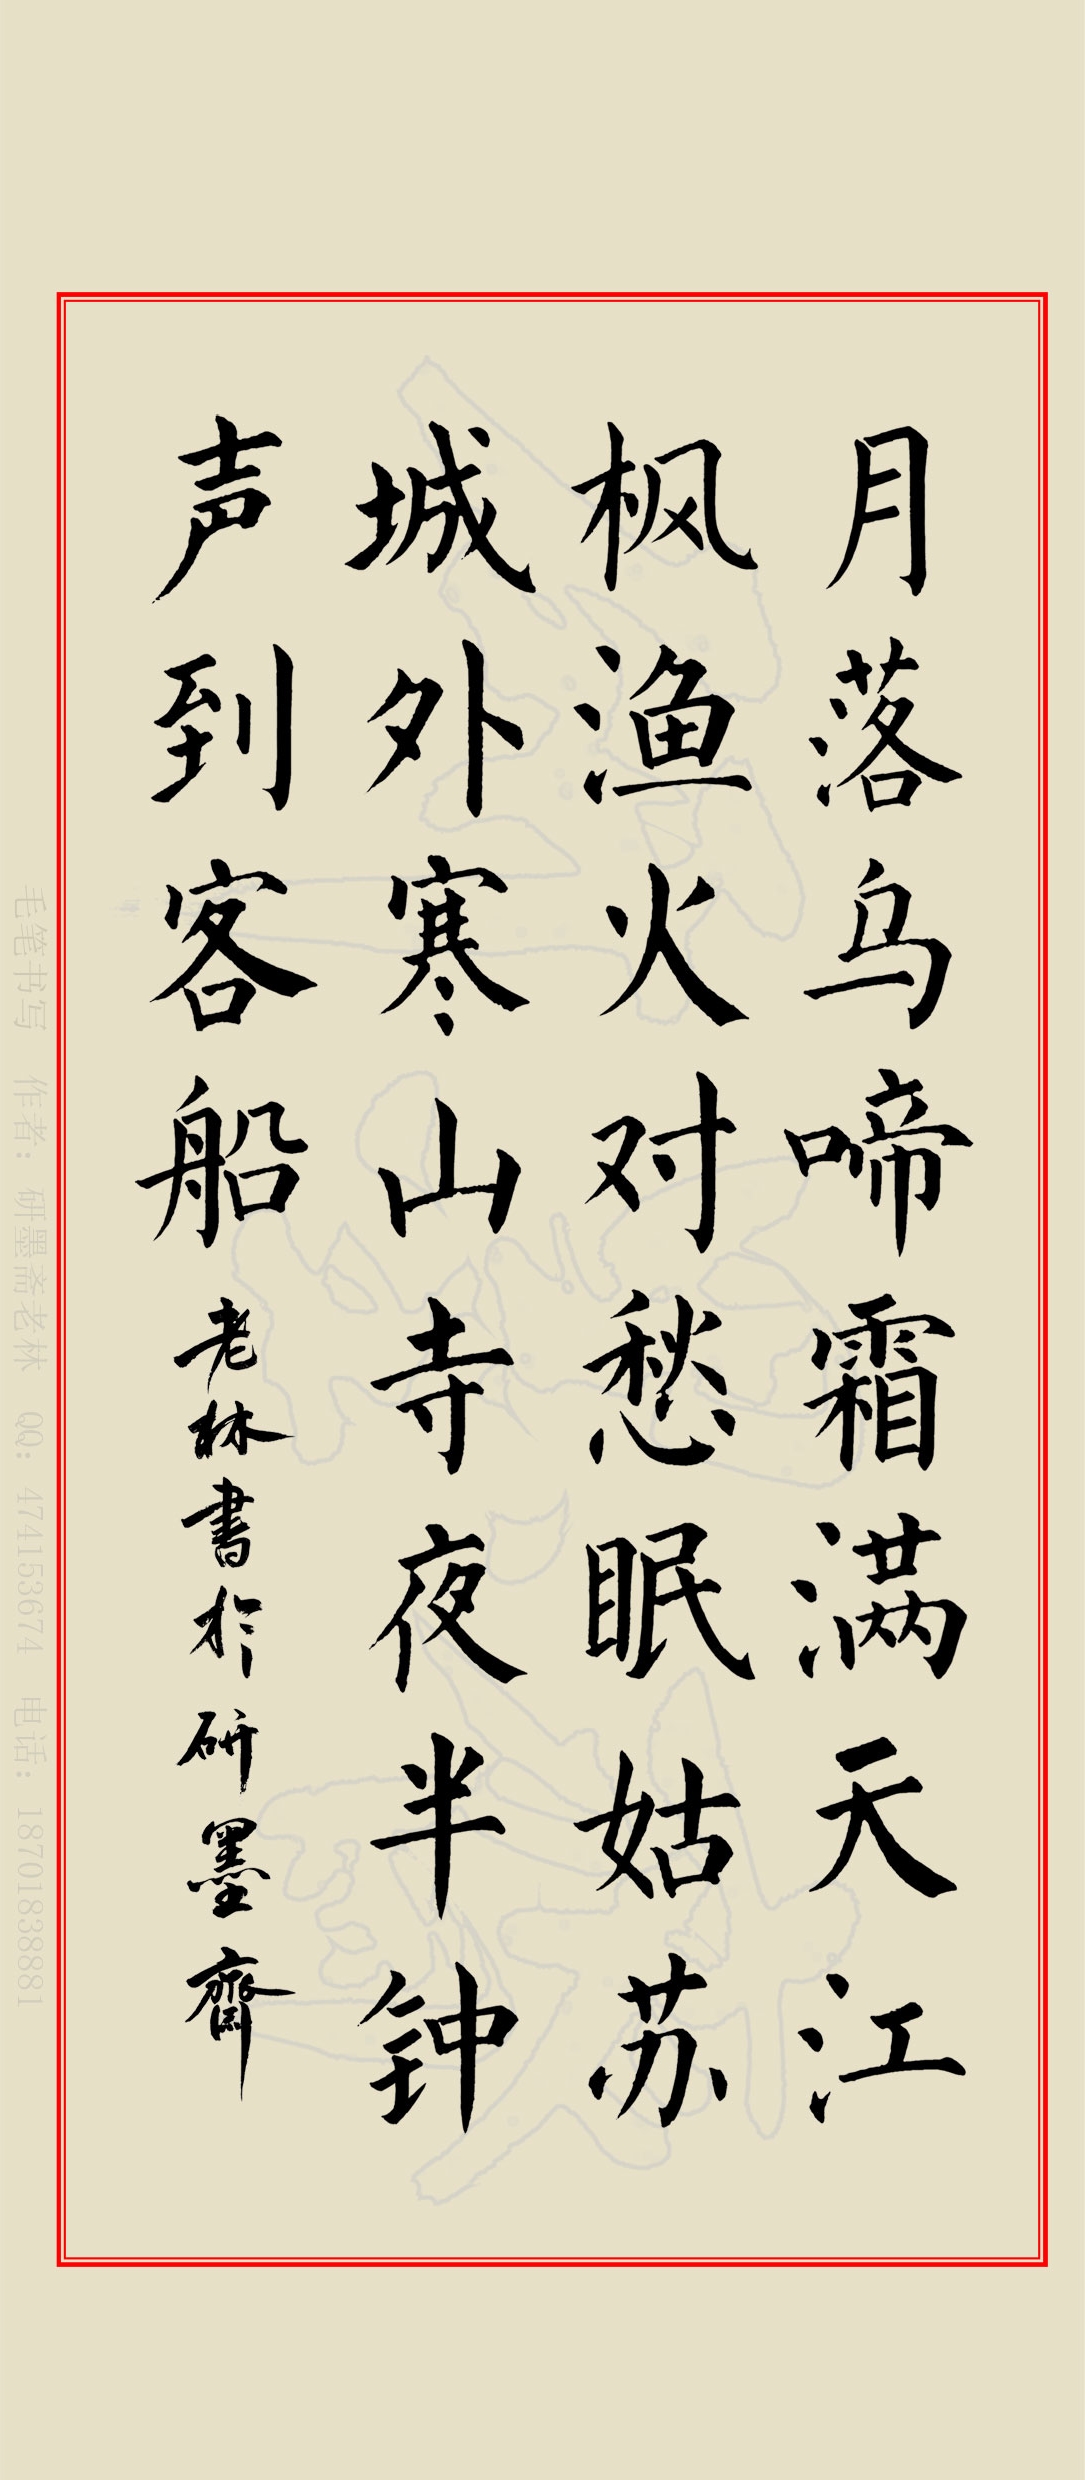 月落乌啼霜满天江
枫渔火对愁眠姑苏
城外寒山寺夜半钟
声到客船 老林書於研墨齋
毛笔书写 作者：研墨斋老林 QQ：474153674 电话：18701838881